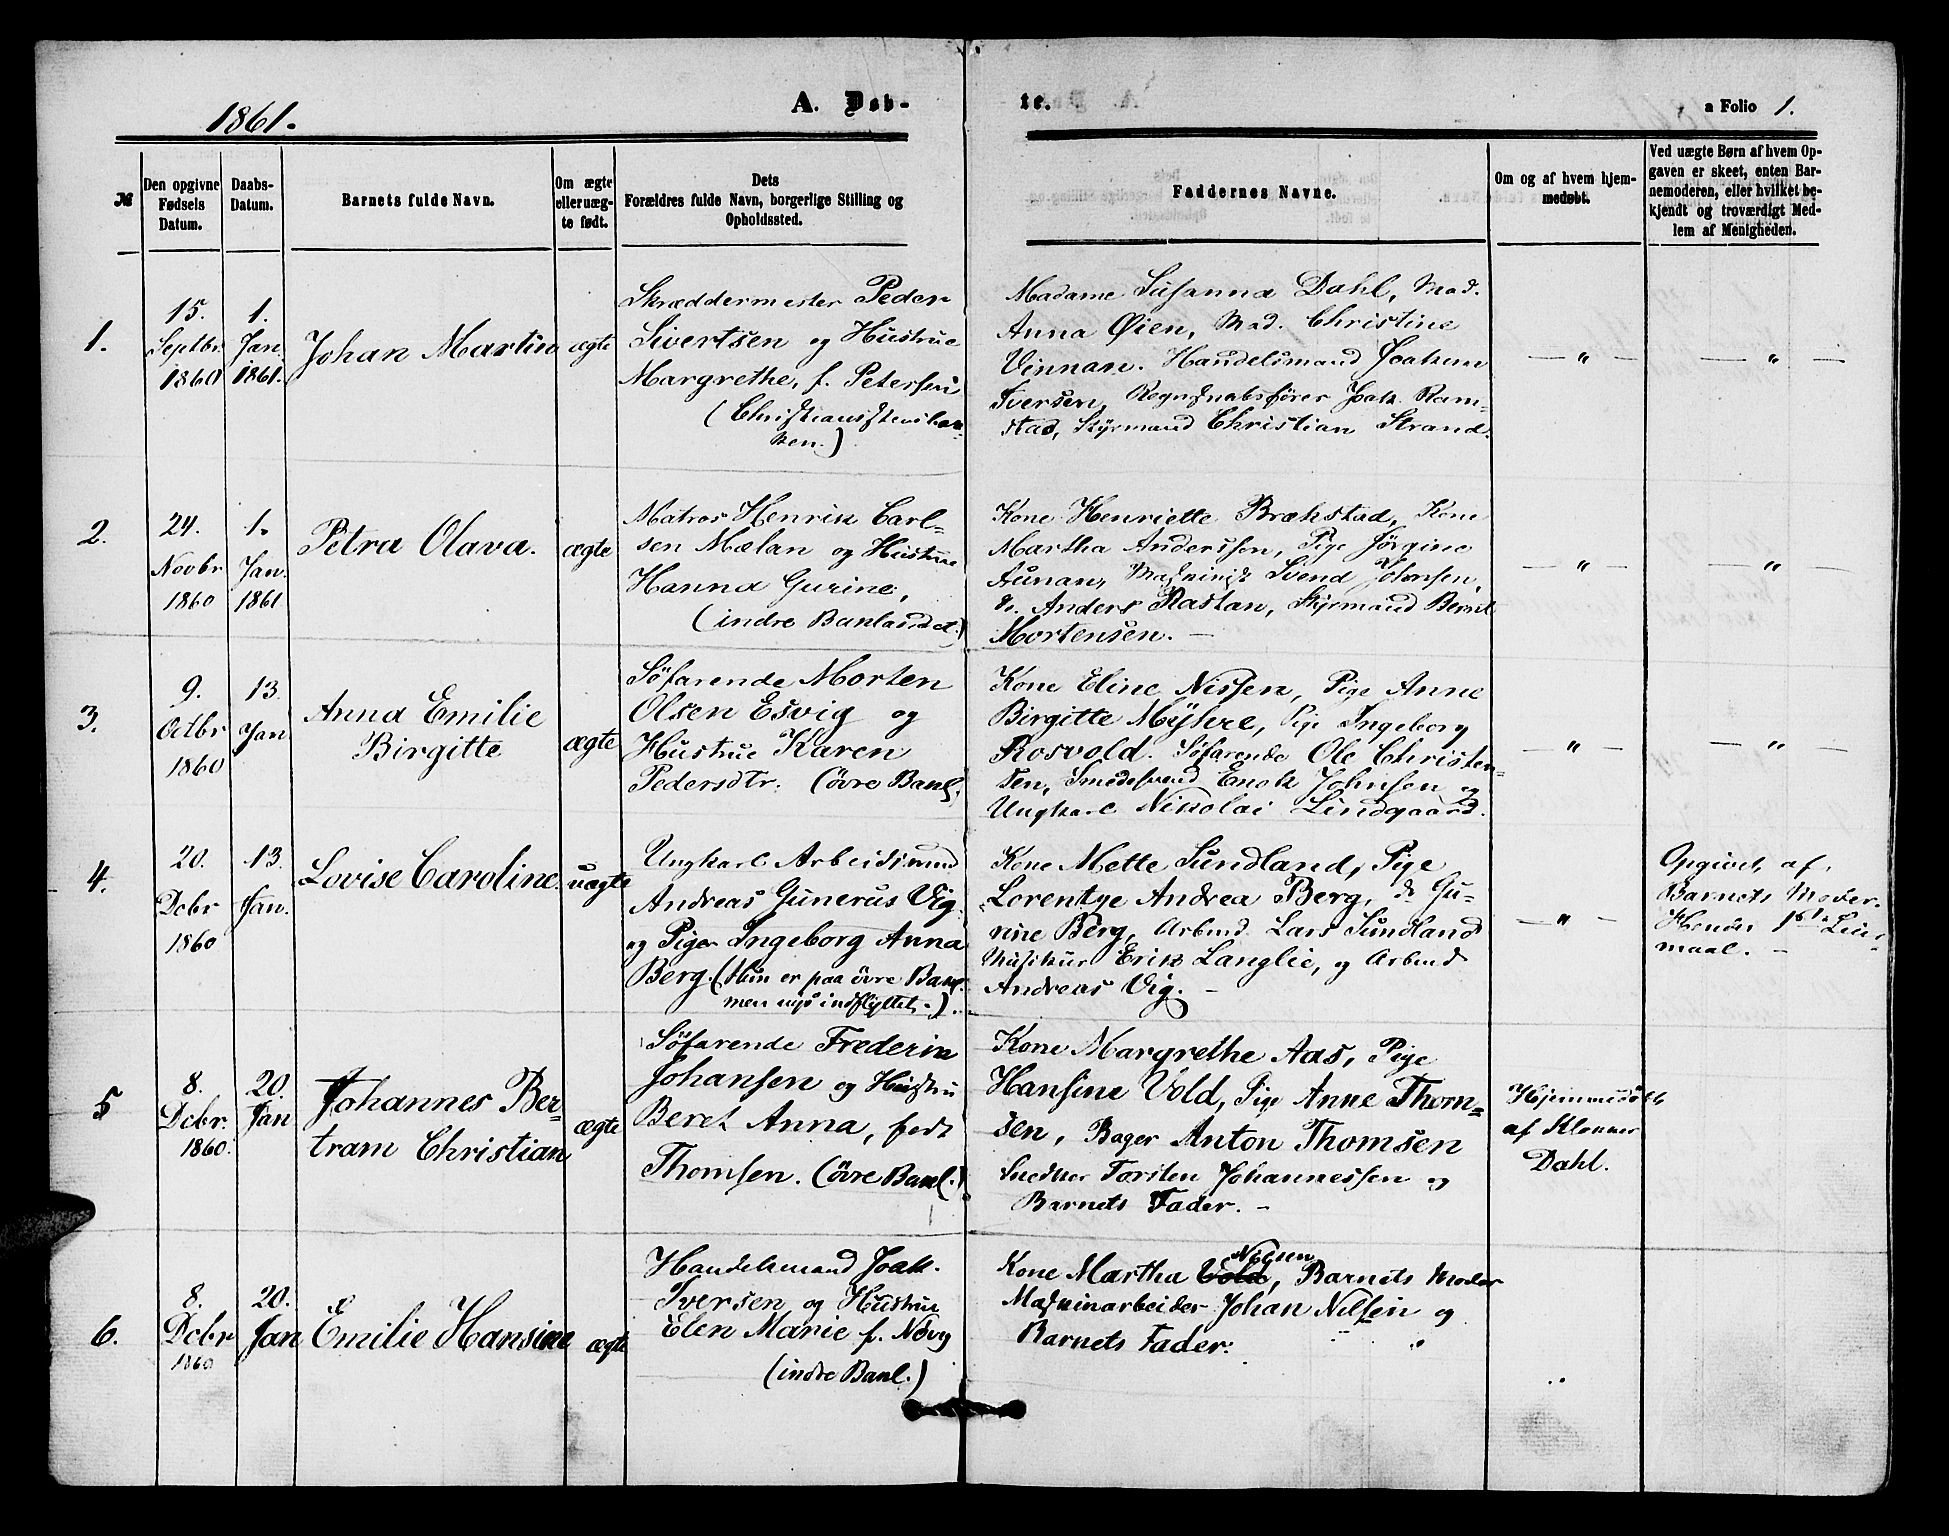 1861.
A. Døb-
te.
a Folio 1.
№
Den opgivne
Fødsels
Datum.
Daabs-
Datum.
Barnets fulde Navn.
Om ægte
eller uæg-
te født.
Dets
Forældres fulde Navn, borgerlige Stilling og
Opholdssted.
Faddernes Navne.
Om og af hvem hjem-
medøbt.
Ved uægte Børn af hvem Op-
gaven er skeet, enten Bar-
nemoderen, eller hvilket be-
kjendt og troværdigt Med-
lem af Menigheden.
1.
15.
Septbr
1860
1.
Jan.
1861.
Johan Martin
ægte
Skræddermester Peder
Sivertsen og Hustrue
Margrethe, f. Petersen
(Christiansstensbak-
ken.)
Madame Susanna Dahl, Mad.
Anna Øien, Mad. Christine
Vinnan. Handelsmand Joakum
Iversen, Regnskabsfører Joak. Ram-
stad, Styrmand Christian Strand.
— " —
— " —
2.
24.
Novbr
1860
1.
Jan.
1861
Petra Olava.
ægte
Matros Henrik Carl-
sen Mælan og Hustrue
Hanna Gurine,
(indre Baklandet.)
Kone Henriette Brækstad, Kone
Martha Anderssen, Pige Jørgine
Aunan, Maskinist Svend Johnsen,
Anders Rastan, Styrmand Bernt
Mortensen. —
— " —
— " —
3.
9.
Octbr
1860
13.
Jan
Anna Emilie
Birgitte
ægte
Söfarende Morten
Olsen Esvig og
Hustrue Karen
Pedersdtr. (övre Bakl.
Kone Eline Nissen, Pige Anne
Birgitte Myhre, Pige Ingeborg
Rosvold. Söfarende Ole Christen-
sen, Smedesvend Enok Johnsen og
Ungkarl Nikolai Lindgaard.
— " —
— " —
4.
20.
Dcbr
1860
13.
Jan.
Lovise Caroline
uægte
Ungkarl Arbeidsmand
Andreas Gunerus Vig
og Pige Ingeborg Anna
Berg. (Hun er paa övre Bakl.
men nys indflyttet.)
Kone Mette Sundland, Pige
Lorentye Andrea Berg, do Gu-
rine Berg, Arbmd. Lars Sundland
Musikus Erik Langlie, og Arbmd
Andreas Vig. —
— " —
Opgivet af
Barnets Moder.
Hendes 1ste Leier-
maal. —
5
8.
Dcbr.
1860.
20.
Jan
Johannes Ber-
tram Christian
ægte
Söfarende Frederik
Johansen og Hustru
Beret Anna, født
Thomsen. (övre Bakl.)
Kone Margrethe Aas, Pige
Hansine Vold, Pige Anne Thom-
sen, Bager Anton Thomsen
Snedker Torsten Johannessen og
Barnets Fader. —
Hjemmedöbt
af Klokker
Dahl.
6.
8.
Dcbr
1860
20.
Jan
Emilie Hansine
ægte
Handelsmand Joak.
Iversen og Hustrue
Elen Marie f. Növg
(indre Bakl.)
Nilsen
Kone Martha Vold, Barnets Moder
Maskinarbeider Johan Nilsen og
Barnets Fader.